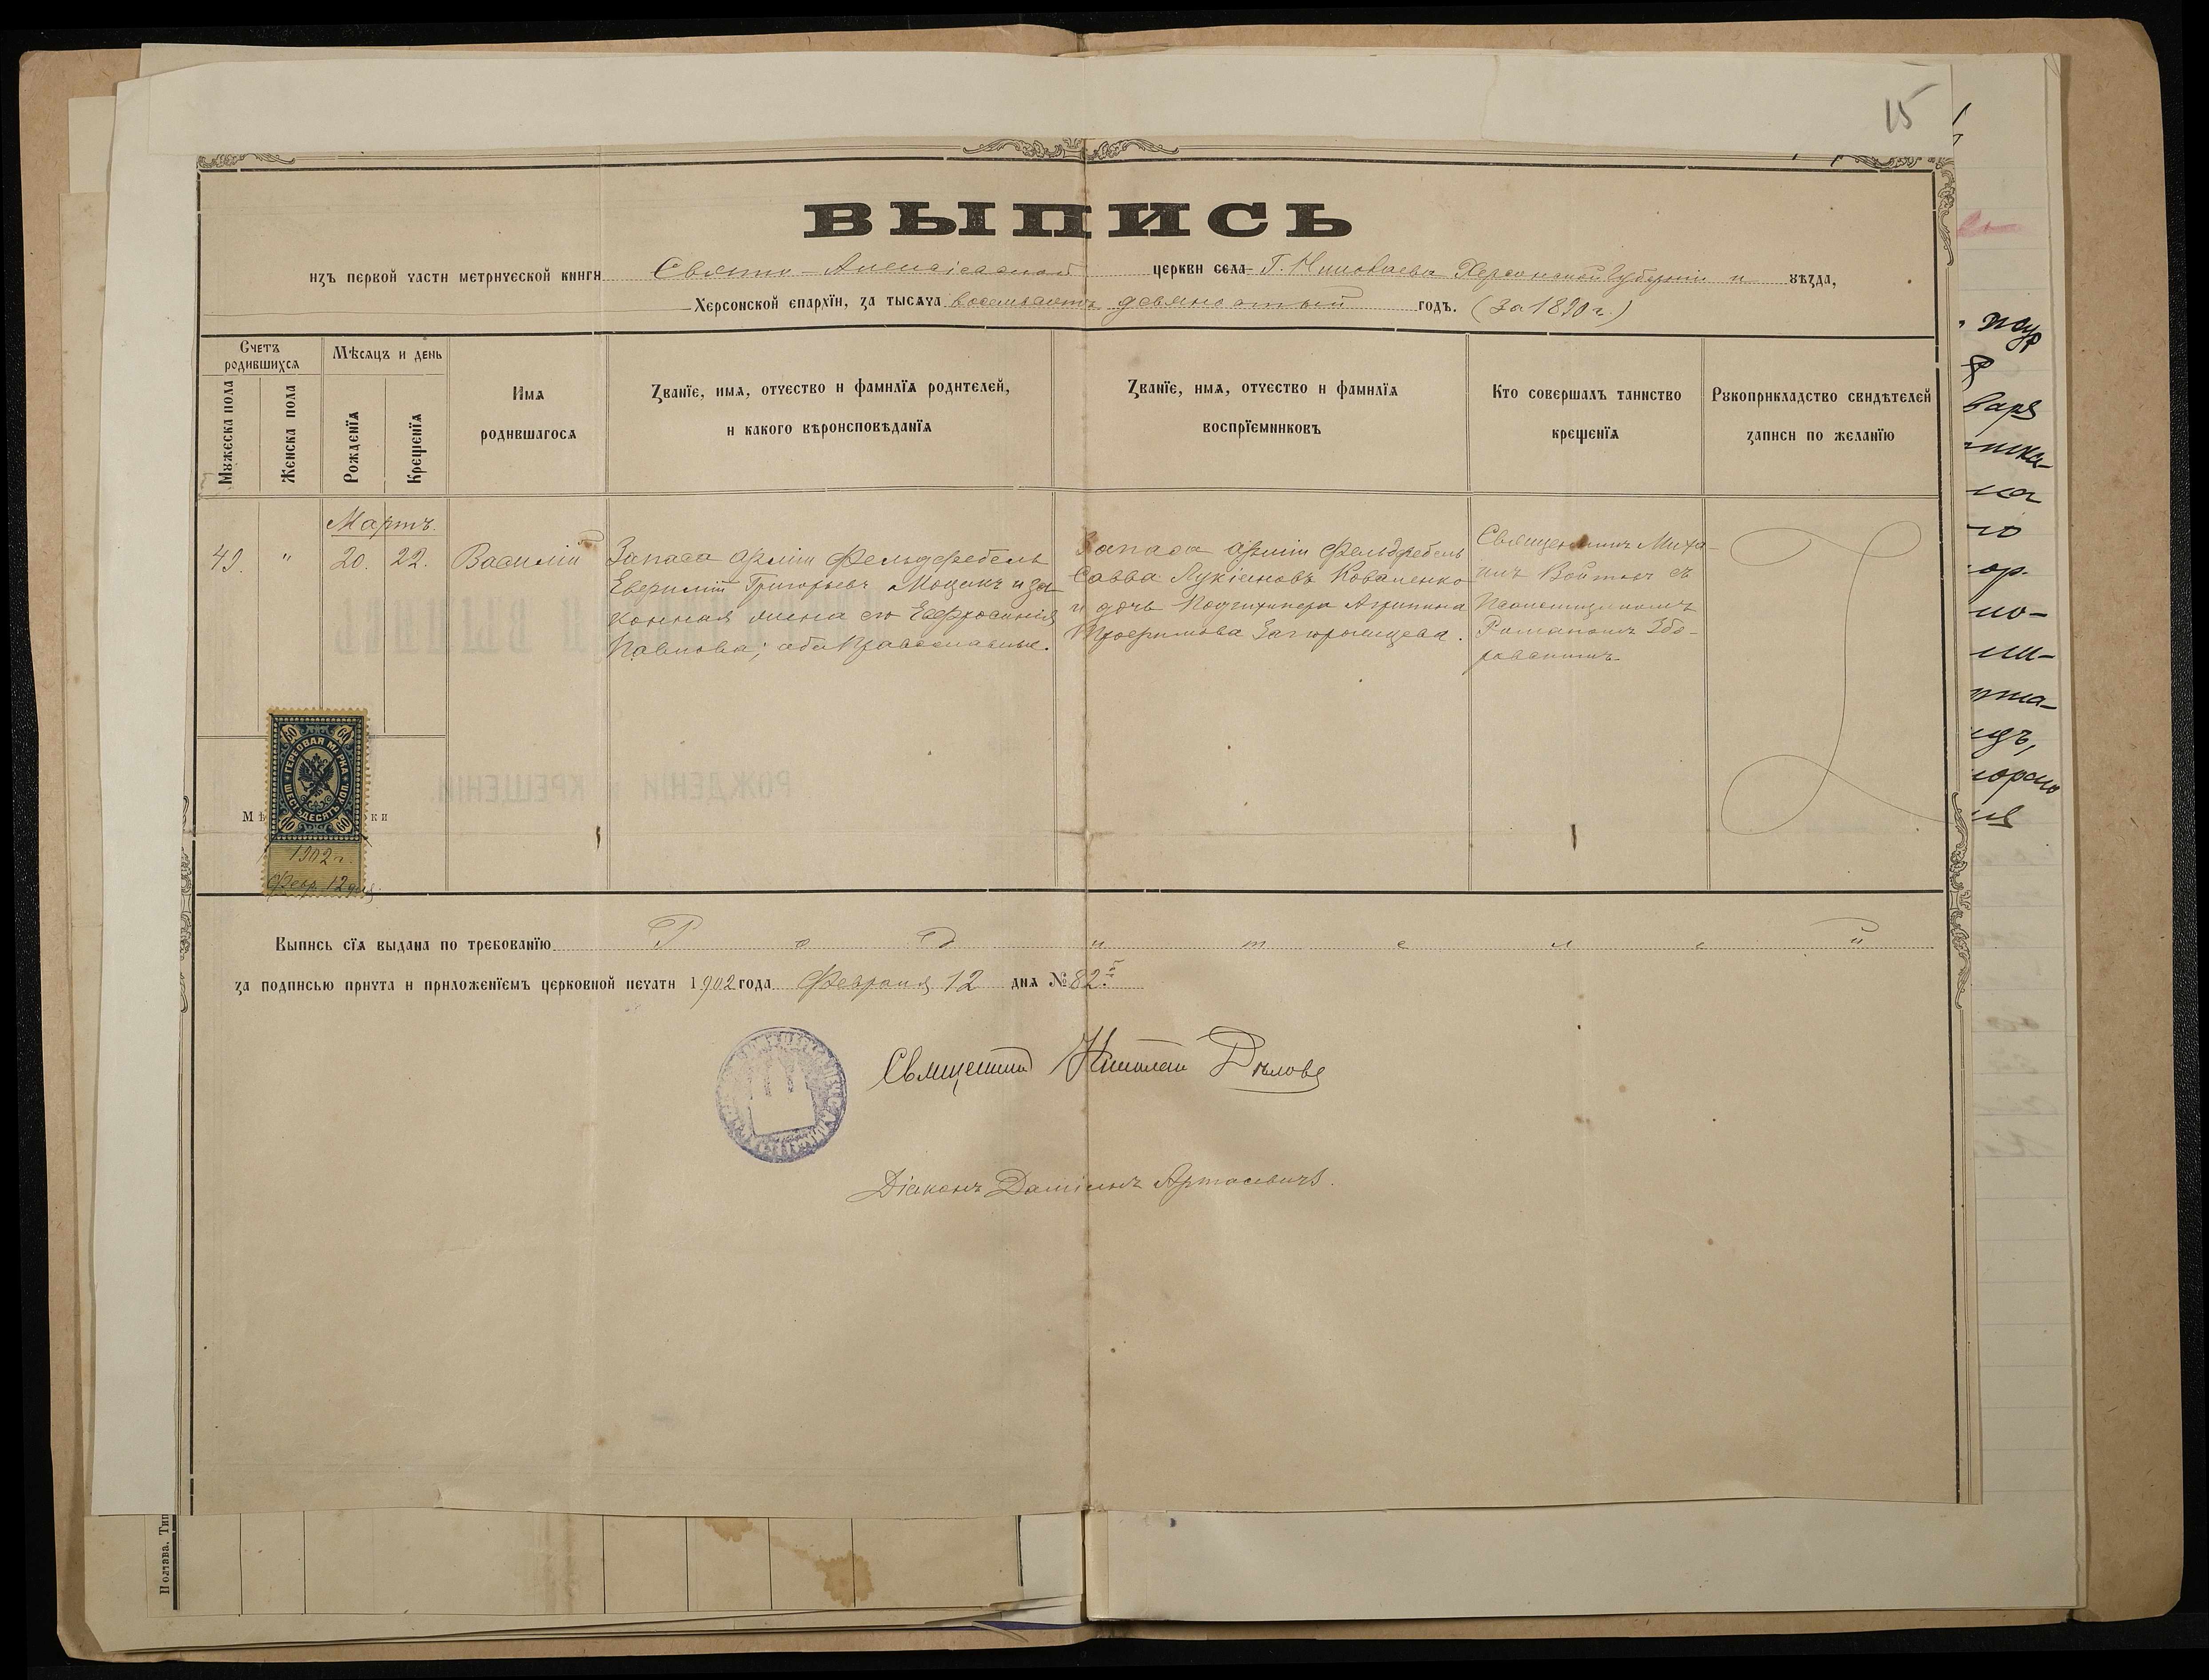 15
ВЫПИСЬ
изъ первой части метрической книги Свято-Алексіевской церкви села Г. Николаева Херсонской Губерніи и уѣзда,
Херсонской епархїи, за тысяча восемьсотъ девяностый годъ. (За 1890 г.)
Счетъ родившихся
Мѣсяцъ и день
Мужеска пола
Женска пола
Рожденїя
Крещенїя
Имя
родившагося
Званїе, имя, отчество и фамилїя родителей,
и какого вѣроисповѣданїя
Званїе, имя, отчество и фамилїя
воспрїемниковъ
Кто совершалъ таинство
крещенїя
Рукоприкладство свидѣтелей
записи по желанїю
Мартъ.
49.
"
20.
22.
Василій
Запаса Арміи Фельдфебель
Григорьевъ Моцакъ и за-
конная жена его Евфросинія
Павлова; оба Православные.
Запаса Арміи Фельдфебель
Савва Лукіановъ Коваленко
и дочь Подшкипера Агрипина
Трофимова
Священникъ Миха-
илъ Войтовъ съ
Псаломщикомъ
Романомъ Збо-
ровскимъ
60
60
ГЕРБОВАЯ МАРКА
ШЕСТЬДЕСЯТЪ КОП.
60
60
Мѣ
ки
1902 г.
Февр. 12 дня
Выпись сїя выдана по требованїю Родителей
за подписью причта и приложенїемъ церковной печати 1902 года Февраля 12 дня № 82.
Священникъ Николай
Діаконъ Даміанъ Артасевичъ.
Полтава. Тип